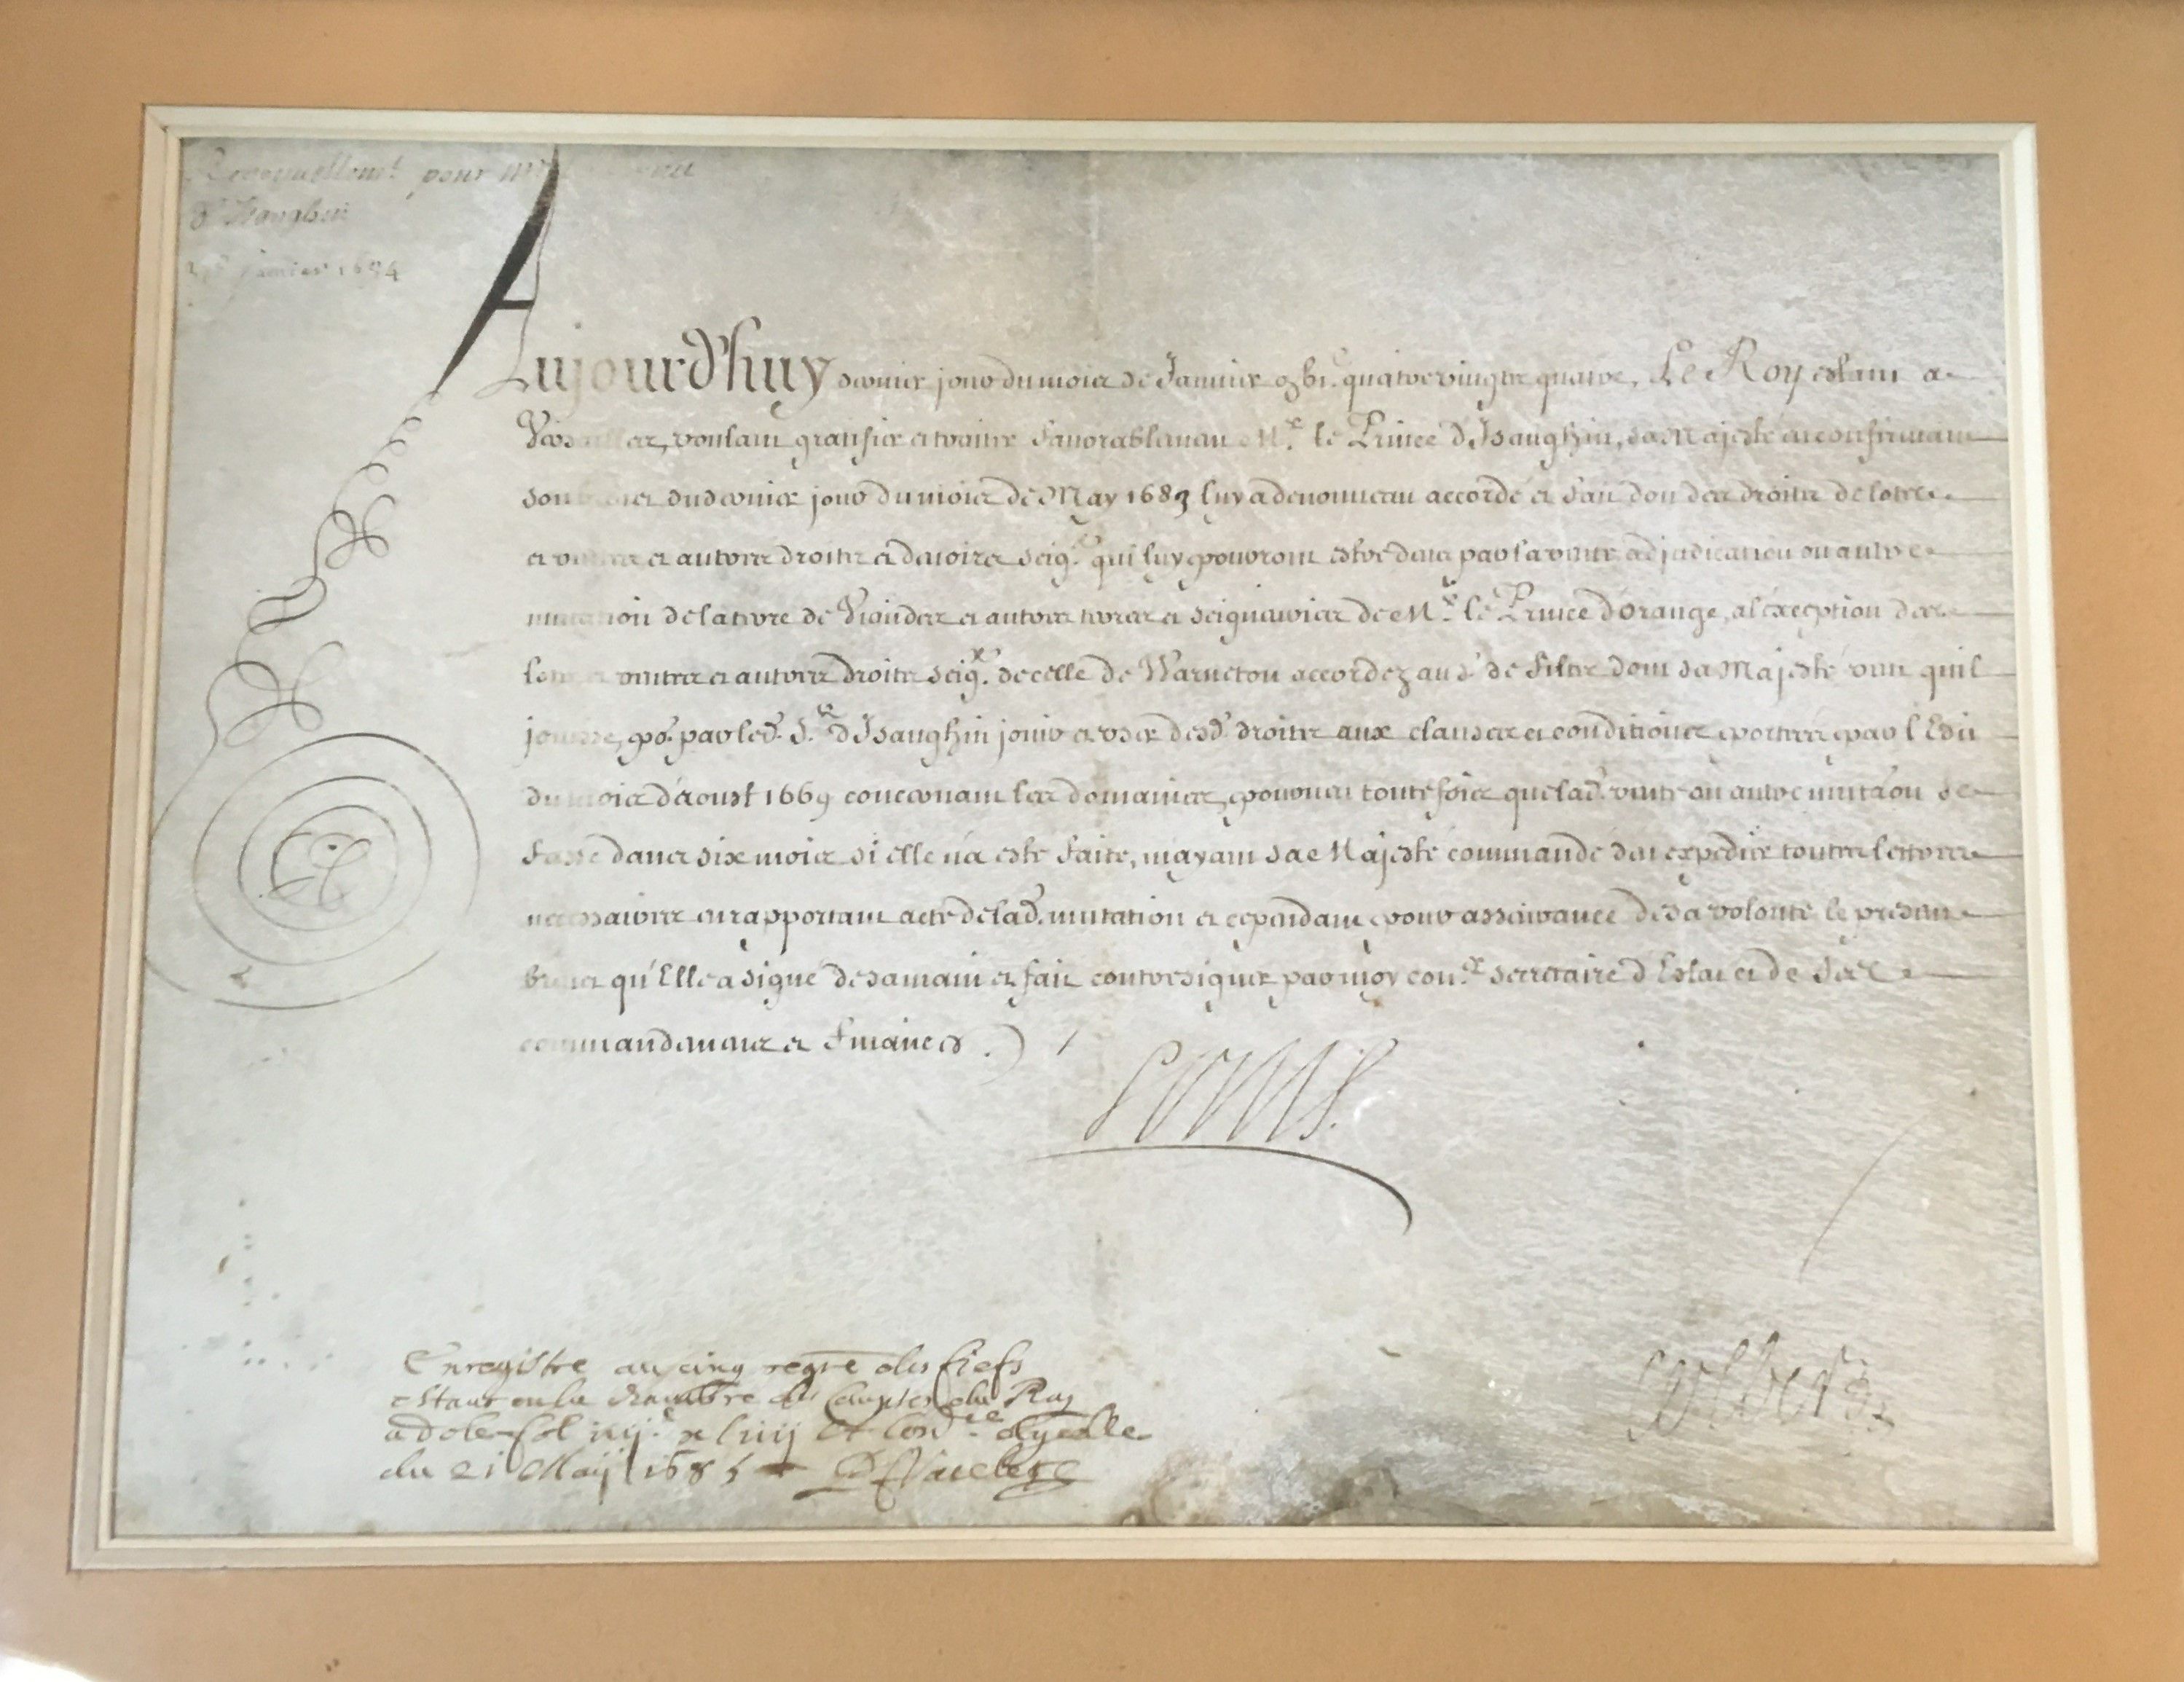 pour
janvier 1684
Aujourd'huy dernier jour du mois de Janvier gbic quatrevingts quatre, Le Roy estant a
Versailles, voulant gratifier et traitter favorablement Mr. le Prince d'Isenghin, sa Majesté en confirmant
son brevet du dernier jour du mois de May 1683 luy a de nouveau accordé et fait don des droits de lots
et ventes et autres droits et devoirs seigx. qui luy pourront estre deus par la vente adjudication ou autre
mutation de la terre de Viandes et autres terres et seigneuries de Mr. le Prince d'Orange, a l'exception des
lots et ventes et autres droits seigx. de celle de Warneton accordez au Sr. de Filtz dont sa Majesté veut qu'il
jouisse, po.r par led. Sr. d'Isenghin jouir et user desd. droits aux clauses et conditions portées par l'Edit
du mois d'aoust 1669 concernant les domaines, pourveu toutesfois que lad. vente ou autre mutaon se
fasse dans six mois si elle n'a esté faite, m'ayant sa Majesté commandé d'en expedier toutes lettres
necessaires en rapportant acte de lad. mutation et cependant pour assurance de sa volonté le present
brevet qu'Elle a signé de sa main et fait contresigner par moy con.er secretaire d'Estat et de ses
commandemens et finances.
Louis.
Colbert
Enregistre au cinq regre des fiefs
estant en la chambre des Comptes du Roy
du 21 May 1685